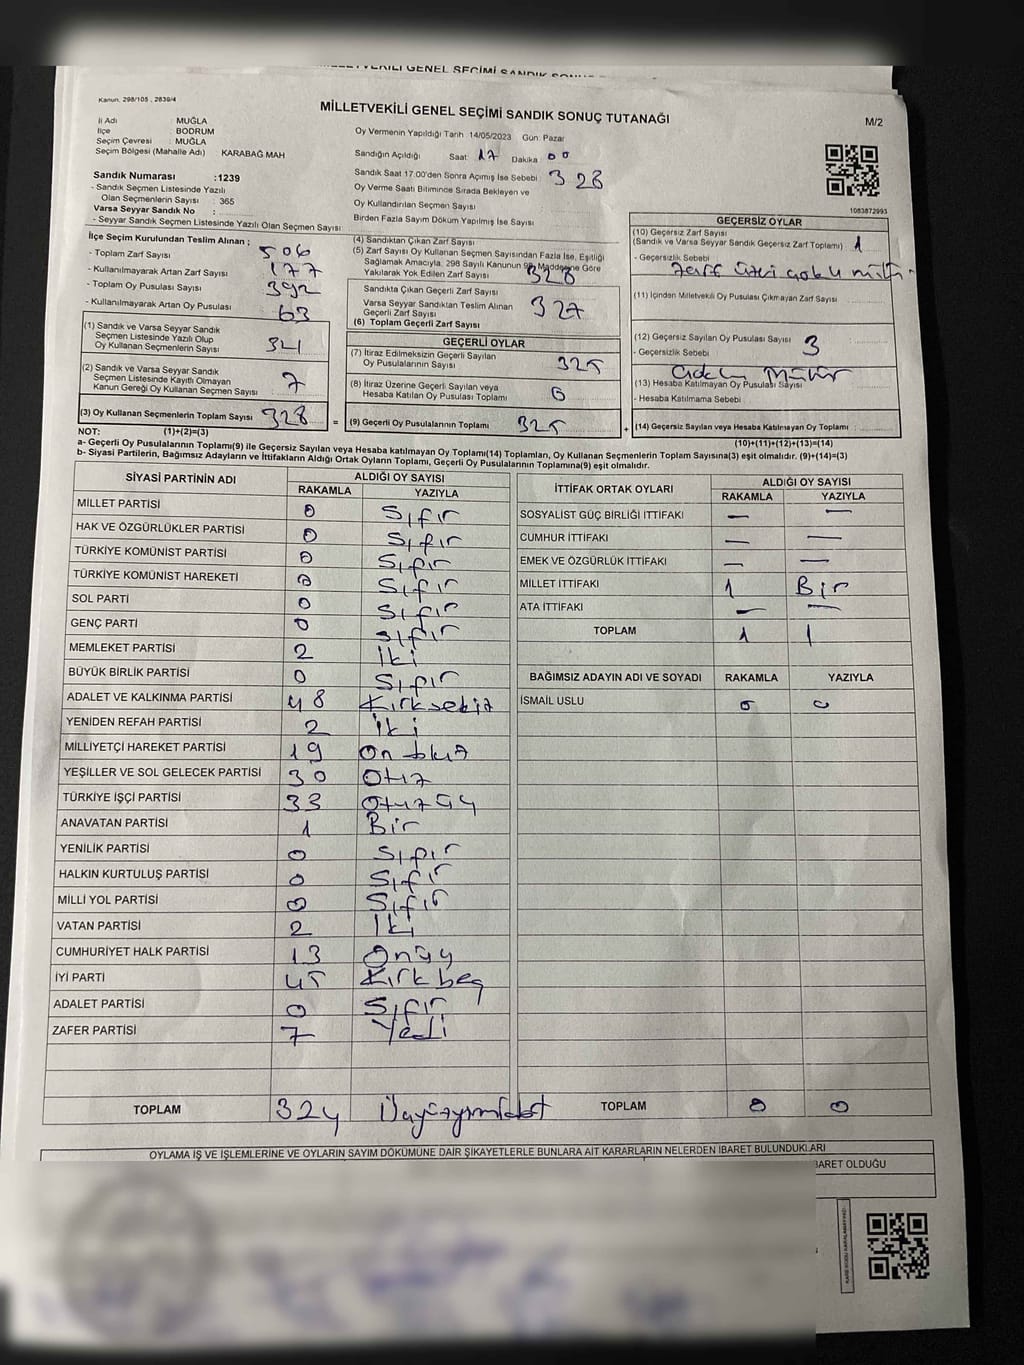 MİLLETVEKİLİ GENEL SEÇİMİ SANDIK
Kanun: 298/105 , 2839/4
MİLLETVEKİLİ GENEL SEÇİMİ SANDIK SONUÇ TUTANAĞI
M/2
İl Adı : MUĞLA
İlçe : BODRUM
Seçim Çevresi : MUĞLA
Seçim Bölgesi (Mahalle Adı) KARABAĞ MAH
Oy Vermenin Yapıldığı Tarih 14/05/2023 Gün: Pazar
Sandığın Açıldığı Saat: 17 Dakika: 00
Sandık Saat 17:00'den Sonra Açımış İse Sebebi: 328
Oy Verme Saati Bitiminde Sırada Bekleyen ve
Oy Kullandırılan Seçmen Sayısı
Birden Fazla Sayım Döküm Yapılmış İse Sayısı
Sandık Numarası :1239
- Sandık Seçmen Listesinde Yazılı
Olan Seçmenlerin Sayısı : 365
Varsa Seyyar Sandık No :
- Seyyar Sandık Seçmen Listesinde Yazılı Olan Seçmen Sayısı
1083872993
İlçe Seçim Kurulundan Teslim Alınan ;
- Toplam Zarf Sayısı 506
- Kullanılmayarak Artan Zarf Sayısı : 177
- Toplam Oy Pusulası Sayısı : 392
- Kullanılmayarak Artan Oy Pusulası : 63
(1) Sandık ve Varsa Seyyar Sandık
Seçmen Listesinde Yazılı Olup
Oy Kullanan Seçmenlerin Sayısı : 321
(2) Sandık ve Varsa Seyyar Sandık
Seçmen Listesinde Kayıtlı Olmayan
Kanun Gereği Oy Kullanan Seçmen Sayısı : 7
(3) Oy Kullanan Seçmenlerin Toplam Sayısı 328
(4) Sandıktan Çıkan Zarf Sayısı
(5) Zarf Sayısı Oy Kullanan Seçmen Sayısından Fazla İse, Eşitliği
Sağlamak Amacıyla, 298 Sayılı Kanunun 98. Maddesine Göre
Yakılarak Yok Edilen Zarf Sayısı 328
Sandıkta Çıkan Geçerli Zarf Sayısı
Varsa Seyyar Sandıktan Teslim Alınan
Geçerli Zarf Sayısı 327
(6) Toplam Geçerli Zarf Sayısı
GEÇERLİ OYLAR
(7) İtiraz Edilmeksizin Geçerli Sayılan
Oy Pusulalarının Sayısı 325
(8) İtiraz Üzerine Geçerli Sayılan veya
Hesaba Katılan Oy Pusulası Toplamı
= (9) Geçerli Oy Pusulalarının Toplamı 325
GEÇERSİZ OYLAR
(10) Geçersiz Zarf Sayısı
(Sandık ve Varsa Seyyar Sandık Geçersiz Zarf Toplamı) 1
- Geçersizlik Sebebi
(11) İçinden Milletvekili Oy Pusulası Çıkmayan Zarf Sayısı
(12) Geçersiz Sayılan Oy Pusulası Sayısı : 3
- Geçersizlik Sebebi
(13) Hesaba Katılmayan Oy Pusulası Sayısı
- Hesaba Katılmama Sebebi
+ (14) Geçersiz Sayılan veya Hesaba Katılmayan Oy Toplamı :
NOT: (1)+(2)=(3)
(10)+(11)+(12)+(13)=(14)
a- Geçerli Oy Pusulalarının Toplamı(9) ile Geçersiz Sayılan veya Hesaba katılmayan Oy Toplamı(14) Toplamları, Oy Kullanan Seçmenlerin Toplam Sayısına(3) eşit olmalıdır. (9)+(14)=(3)
b- Siyasi Partilerin, Bağımsız Adayların ve İttifakların Aldığı Ortak Oyların Toplamı, Geçerli Oy Pusulalarının Toplamına(9) eşit olmalıdır.
SİYASİ PARTİNİN ADI ALDIĞI OY SAYISI
RAKAMLA YAZIYLA
MİLLET PARTİSİ 0 Sıfır
HAK VE ÖZGÜRLÜKLER PARTİSİ 0 Sıfır
TÜRKİYE KOMÜNİST PARTİSİ 0 Sıfır
TÜRKİYE KOMÜNİST HAREKETİ 0 Sıfır
SOL PARTİ 0 Sıfır
GENÇ PARTİ 0 Sıfır
MEMLEKET PARTİSİ 2 İki
BÜYÜK BİRLİK PARTİSİ 0 Sıfır
ADALET VE KALKINMA PARTİSİ 48 Kırksekiz
YENİDEN REFAH PARTİSİ 2 İki
MİLLİYETÇİ HAREKET PARTİSİ 19
YEŞİLLER VE SOL GELECEK PARTİSİ 30 Otız
TÜRKİYE İŞÇİ PARTİSİ 33 Otuzüç
ANAVATAN PARTİSİ 1 Bir
YENİLİK PARTİSİ 0 Sıfır
HALKIN KURTULUŞ PARTİSİ 0 Sıfır
MİLLİ YOL PARTİSİ 0 Sıfır
VATAN PARTİSİ 2 İki
CUMHURİYET HALK PARTİSİ 13 Onüç
İYİ PARTİ 45 Kırk beş
ADALET PARTİSİ 0 Sıfır
ZAFER PARTİSİ 7 Yedi
TOPLAM 324
İTTİFAK ORTAK OYLARI ALDIĞI OY SAYISI
RAKAMLA YAZIYLA
SOSYALİST GÜÇ BİRLİĞİ İTTİFAKI — —
CUMHUR İTTİFAKI — —
EMEK VE ÖZGÜRLÜK İTTİFAKI — —
MİLLET İTTİFAKI 1 Bir
ATA İTTİFAKI — —
TOPLAM 1 1
BAĞIMSIZ ADAYIN ADI VE SOYADI RAKAMLA YAZIYLA
İSMAİL USLU 0 0
TOPLAM 0 0
OYLAMA İŞ VE İŞLEMLERİNE VE OYLARIN SAYIM DÖKÜMÜNE DAİR ŞİKAYETLERLE BUNLARA AİT KARARLARIN NELERDEN İBARET BULUNDUKLARI
BARET OLDUĞU